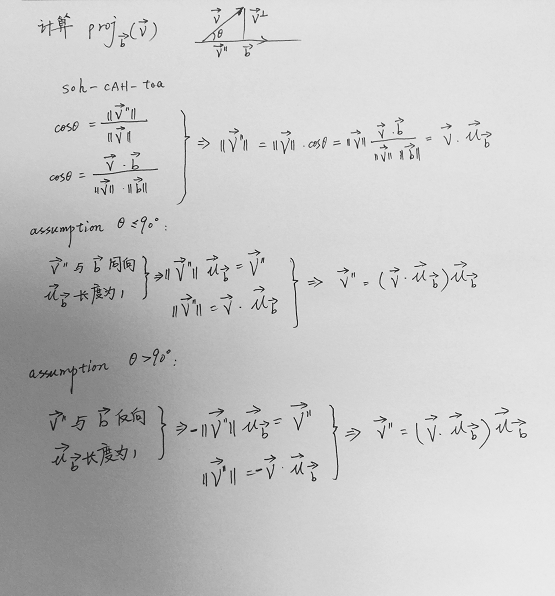 计算 proj_b⃗(v⃗)
v⃗ v⃗⊥
θ
v⃗" b⃗
soh-CAH-toa
cosθ = ‖v⃗"‖ / ‖v⃗‖
cosθ = v⃗·b⃗ / ‖v⃗‖·‖b⃗‖
⇒ ‖v⃗"‖ = ‖v⃗‖·cosθ = ‖v⃗‖ v⃗·b⃗ / ‖v⃗‖ ‖b⃗‖ = v⃗·u⃗_b⃗
assumption θ≤90°:
v⃗"与b⃗同向
u⃗_b⃗长度为1
⇒ ‖v⃗"‖ u⃗_b⃗ = v⃗"
‖v⃗"‖ = v⃗·u⃗_b⃗
⇒ v⃗" = (v⃗·u⃗_b⃗)u⃗_b⃗
assumption θ>90°:
v⃗"与b⃗反向
u⃗_b⃗长度为1
⇒ -‖v⃗"‖ u⃗_b⃗ = v⃗"
‖v⃗"‖ = -v⃗·u⃗_b⃗
⇒ v⃗" = (v⃗·u⃗_b⃗)u⃗_b⃗